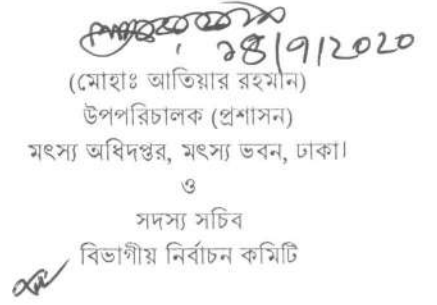 28/9/2020
(মোহাঃ আতিয়ার রহমান)
উপপরিচালক (প্রশাসন)
মৎস্য অধিদপ্তর, মৎস্য ভবন, ঢাকা।
ও
সদস্য সচিব
বিভাগীয় নির্বাচন কমিটি